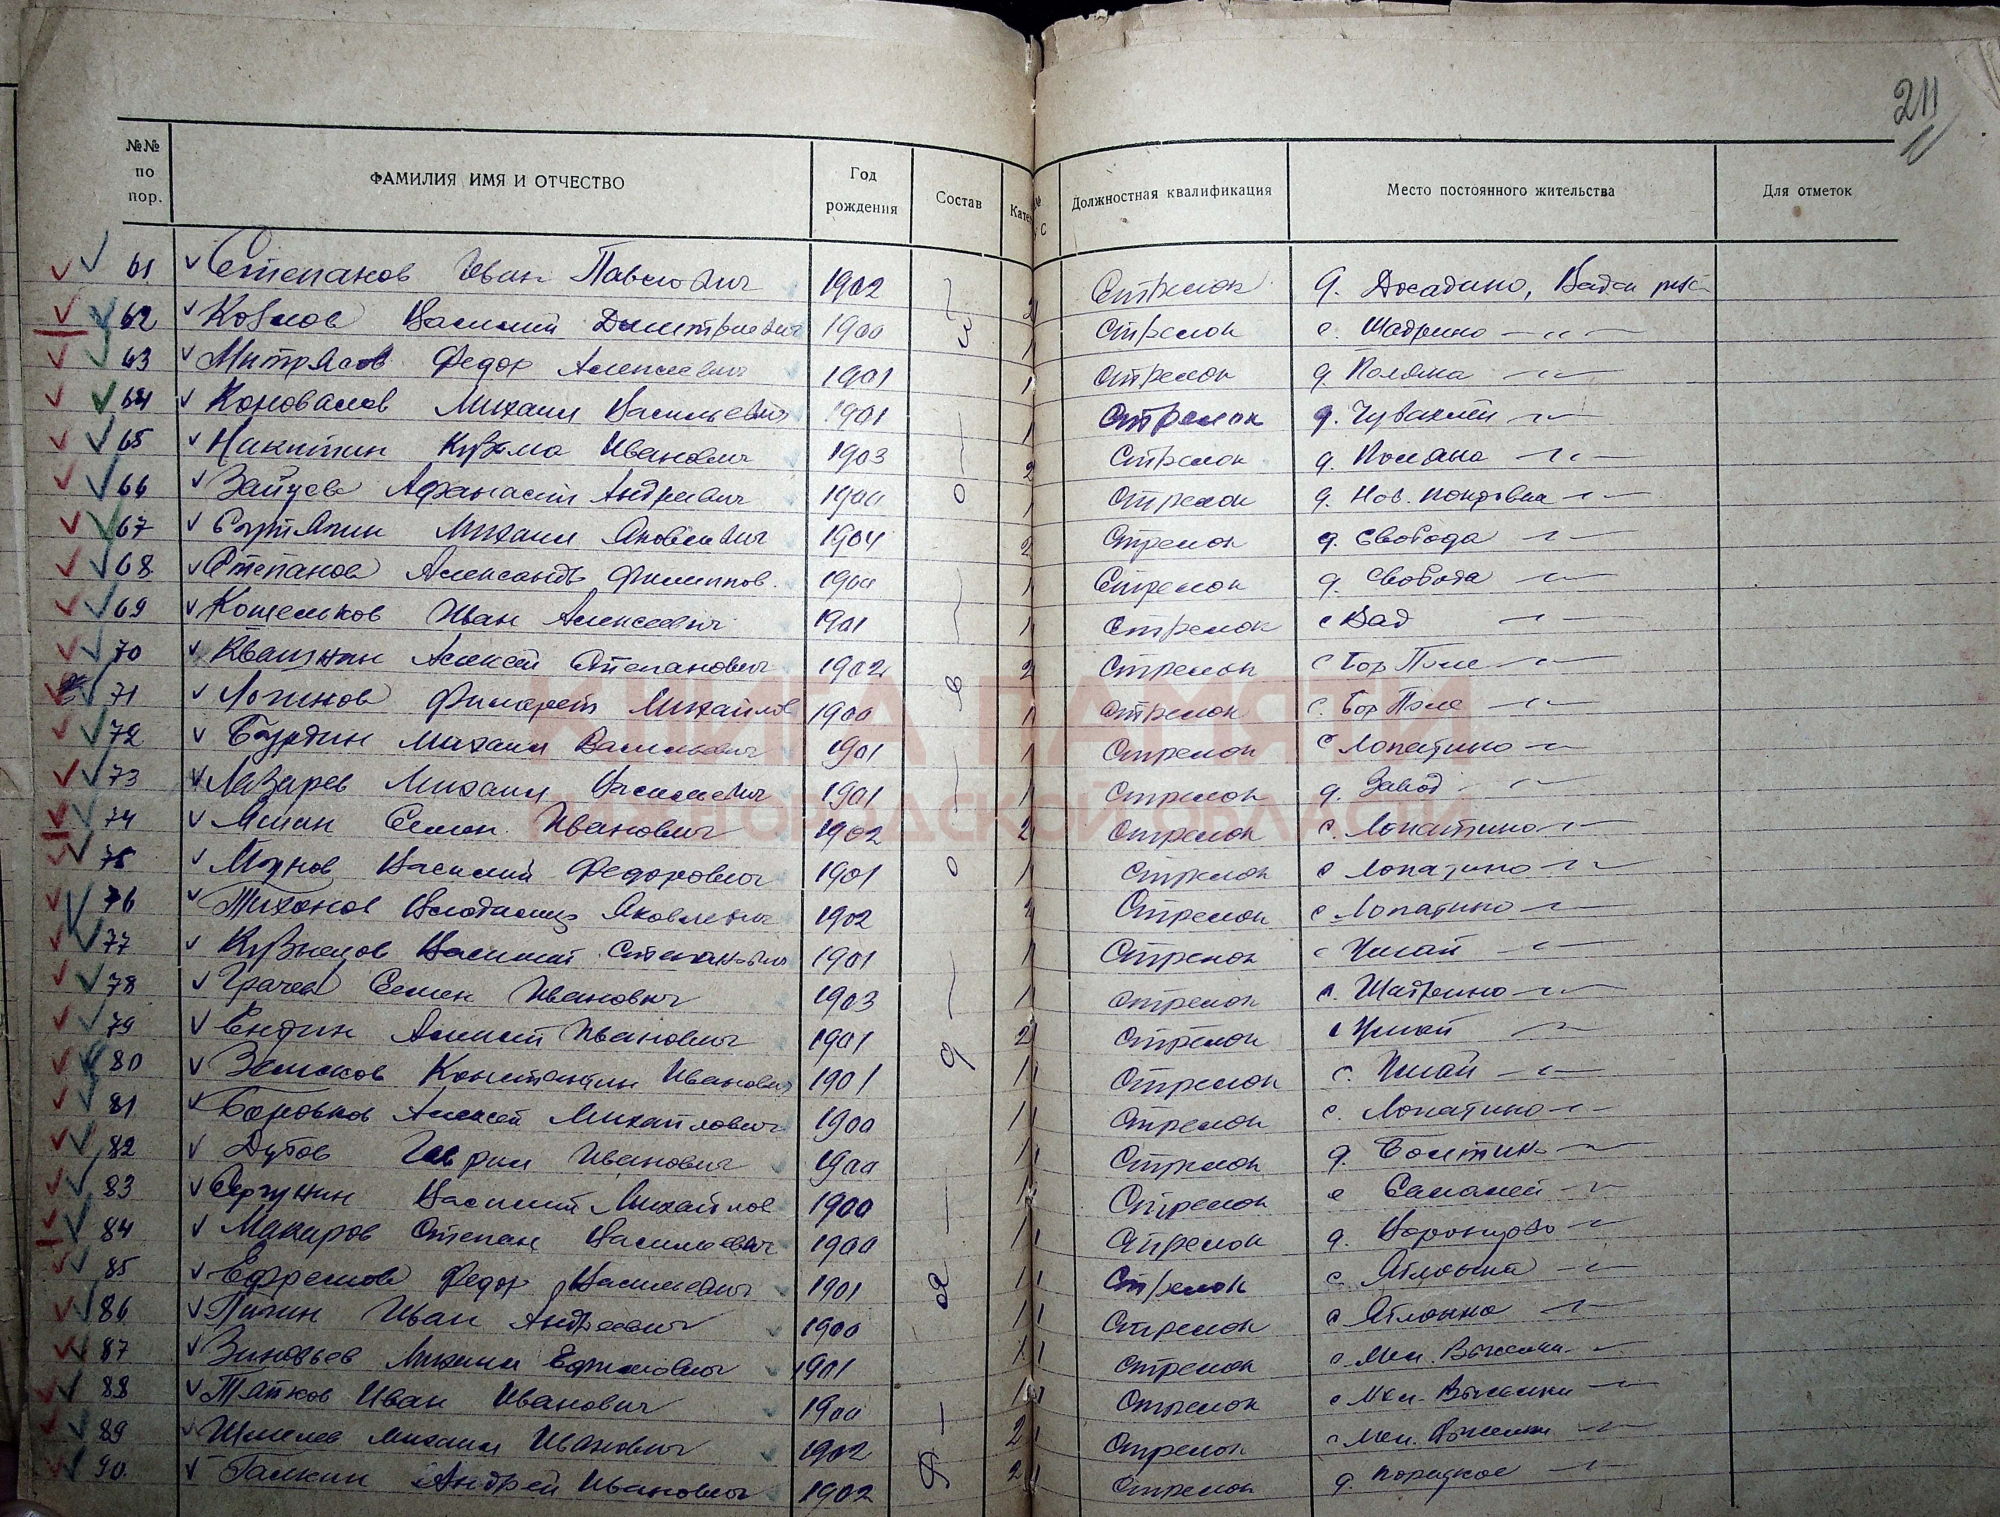 211
№№ по пор. ФАМИЛИЯ ИМЯ И ОТЧЕСТВО Год рождения Состав Кате № С Должностная квалификация Место постоянного жительства Для отметок
61 Степанов Иван Павлович 1902 2 Стрелок д. Досадино,
62 Козлов Василий Дмитриевич 1900 1 Стрелок с. Шадрино — „ —
63 Митрясов Федор Алексеевич 1901 1 Стрелок д Поляна — „ —
64 Коновалов Михаил Васильевич 1901 1 Стрелок д. — „ —
65 Никитин Кузьма Иванович 1903 2 Стрелок д. Поляна — „ —
66 Зайцев Афанасий Андреевич 1900 1 Стрелок д. Нов. — „ —
67 Михаил Яковлевич 1904 2 Стрелок д. Свобода — „ —
68 Степанов Александр Филиппов. 1900 1 Стрелок д. Свобода — „ —
69 Кошельков Иван Алексеевич 1901 1 Стрелок с Вад — „ —
70 Квашнин Алексей Степанович 1902 2 Стрелок с Бор Поле — „ —
71 Логинов Филарет Михайлов 1900 1 Стрелок с. Бор Поле — „ —
72 Бурдин Михаил Васильевич 1901 1 Стрелок с Лопатино — „ —
73 Лазарев Михаил Васильевич 1901 1 Стрелок д. Завод — „ —
74 Семен Иванович 1902 2 Стрелок с. Лопатино — „ —
75 Василий Федорович 1901 1 Стрелок с Лопатино — „ —
76 Тихонов Владимир Яковлевич 1902 2 Стрелок с Лопатино — „ —
77 Кузнецов Василий Степанович 1901 1 Стрелок с Умай — „ —
78 Грачев Семен Иванович 1903 1 Стрелок с. Шадрино — „ —
79 Ендин Алексей Иванович 1901 2 Стрелок с Умай — „ —
80 Земсков Константин Иванович 1901 1 Стрелок с. Умай — „ —
81 Боровков Алексей Михайлович 1900 1 Стрелок с. Лопатино — „ —
82 Дубов Иванович 1900 1 Стрелок д. — „ —
83 Сергунин Василий Михайлов 1900 1 Стрелок с — „ —
84 Макаров Степан Васильевич 1900 1 Стрелок д. Воронцово — „ —
85 Ефремов Федор Васильевич 1901 1 Стрелок с. — „ —
86 Иван Андреевич 1900 1 Стрелок с — „ —
87 Зиновьев Михаил Ефимович 1901 1 Стрелок с — „ —
88 Иван Иванович 1900 1 Стрелок с — „ —
89 Шмелев Михаил Иванович 1902 2 Стрелок с — „ —
90. Галкин Андрей Иванович 1902 2 Стрелок д. — „ —
КНИГА ПАМЯТИ
НИЖЕГОРОДСКОЙ ОБЛАСТИ